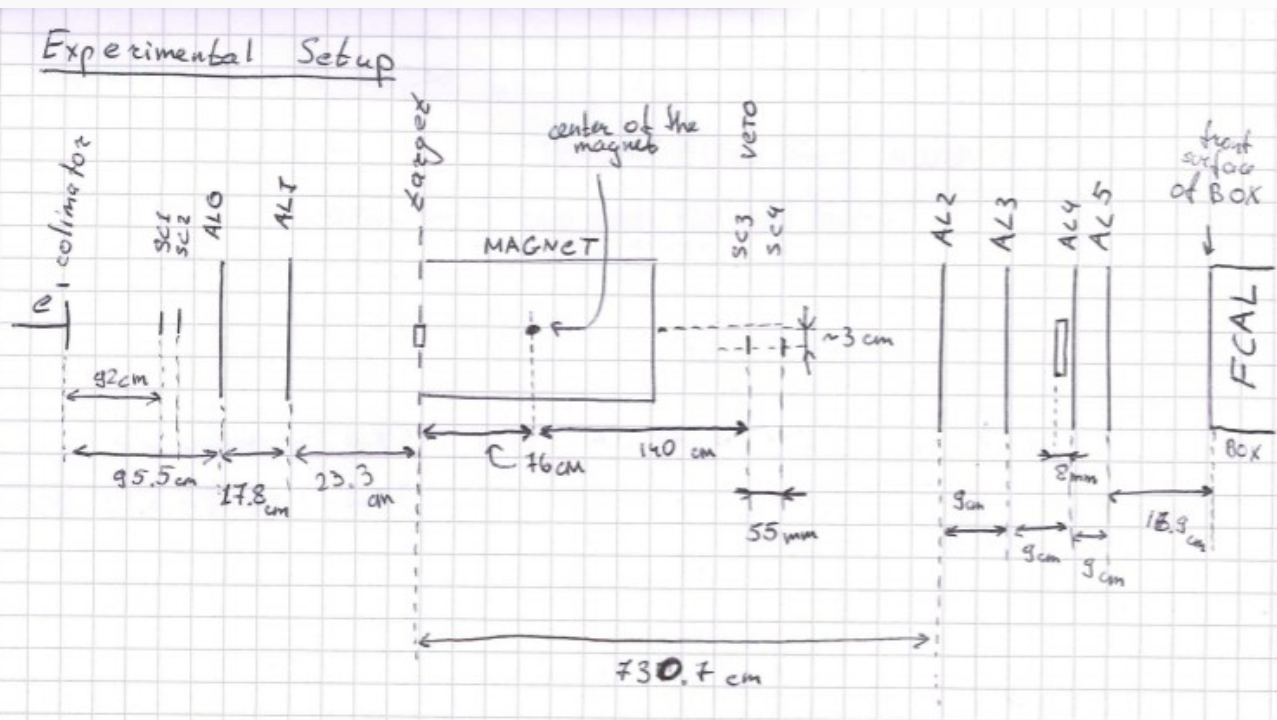 Experimental Setup
e
colimator
SC1
SC2
ALO
target
center of the
magnet
MAGNET
VETO
SC3
SC4
~3 cm
AL2
AL3
AL4
AL5
front
surface
of BOX
FCAL
BOX
92cm
95.5cm
17.8
cm
23.3
cm
76cm
140 cm
55mm
9cm
9cm
9cm
730.7 cm